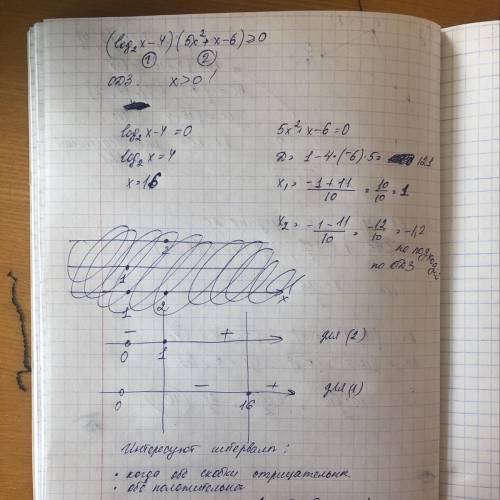 (log₂x-4)(5x²+x-6)≥0
① ②
ОДЗ. x>0!
log₂x-4=0
log₂x=4
x=16
5x²+x-6=0
D=1-4·(-6)·5= 121
x₁= (-1+11)/10 = 10/10 = 1
x₂= (-1-11)/10 = -12/10 = -1,2
по ОДЗ
1 2 x
- +
0 1
для (2)
- +
0 16
для (1)
Интересуют интервалы:
• когда обе скобки отрицательны
• обе положительны